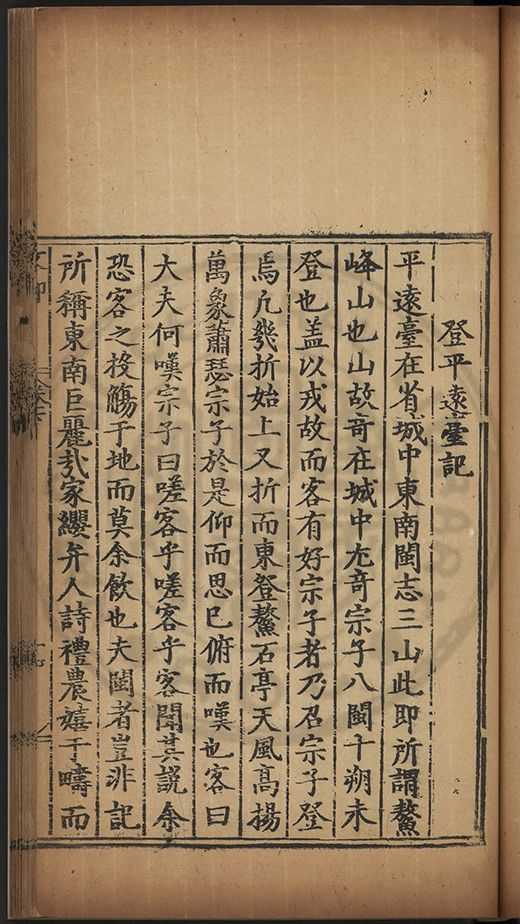 登平遠臺記
平遠臺在省城中東南閩志三山此即所謂鰲
峰山也山故奇在城中尤奇宗子八閩十朔未
登也盖以戎故而客有好宗子者乃召宗子登
焉凡幾折始上又折而東登鰲石亭天風髙揚
萬象蕭瑟宗子於是仰而思已俯而嘆也客曰
大夫何嘆宗子曰嗟客乎嗟客乎客聞其說余
恐客之投觴于地而莫余飲也夫閩者豈非記
所稱東南巨麗㢤家纓弁人詩禮農嬉于疇而